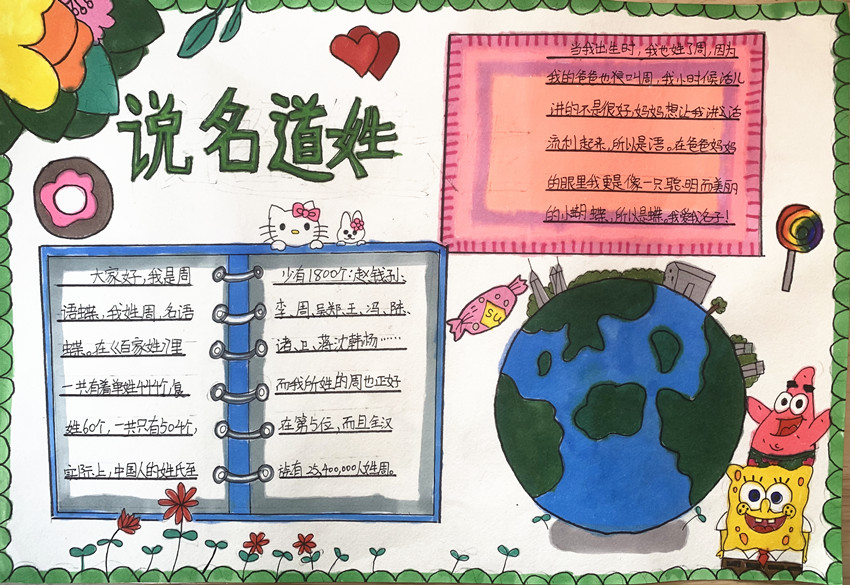 说名道姓
大家好，我是周
语蝶，我姓周，名语
蝶。在《百家姓》里
一共有着单姓444个，复
姓60个，一共只有504个，
实际上，中国人的姓氏至
少有1800个：赵钱孙、
李、周、吴郑、王、冯、陈、
诸、卫、蒋沈韩杨……
而我所姓的周也正好
在第5位，而且全汉
族有25,400,000人姓周。
当我出生时，我也姓了周，因为
我的爸爸也狠叫周，我小时候话儿
讲的不是很好，妈妈想让我讲话
流利起来，所以是语。在爸爸妈妈
的眼里我更是像一只聪明而美丽
的小蝴蝶，所以是蝶。我爱我名子！
SU